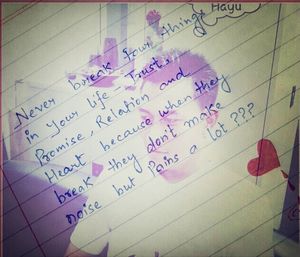 Hayu
Never break four things
in your life - Trust,
Promise, Relation and
Heart because when they
break they don't make
noise but Pains a lot???